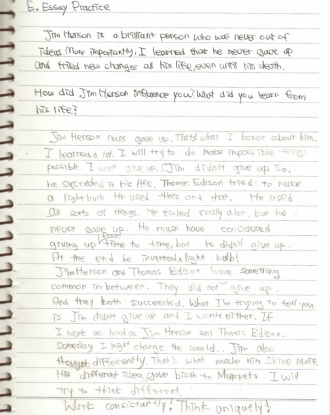 E. Essay Practice
Jim Henson is a brilliant person who was never out of
ideas. More importantly, I learned that he never gave up
and tried new changes all his life, even until his death.
How did Jim Henson influence you? What did you learn from
his life?
Jim Henson never gave up. That's what I honor about him.
I learned a lot. I will try to do make impossible things
possible. I wont give up. Jim didn't give up so,
he succeeded in his life. Thomas Edison tried to make
a light bulb. He used this and that. He used
all sorts of things. He failed really alot, but he
never gave up. He must have considered
giving up from time to time, but he didn't give up.
At the end he invented a light bulb!
Jim Henson and Thomas Edison have something
common in between. They did not give up.
And they both succeeded. What I'm trying to tell you
is Jim didn't give up and I won't either. If
I work as hard as Jim Henson and Thomas Edison,
someday I might change the world.. Jim also
thought differently. That's what made him shine more.
His different idea gave birth to Muppets. I will
try to think different
Work constantly! Think uniquely!